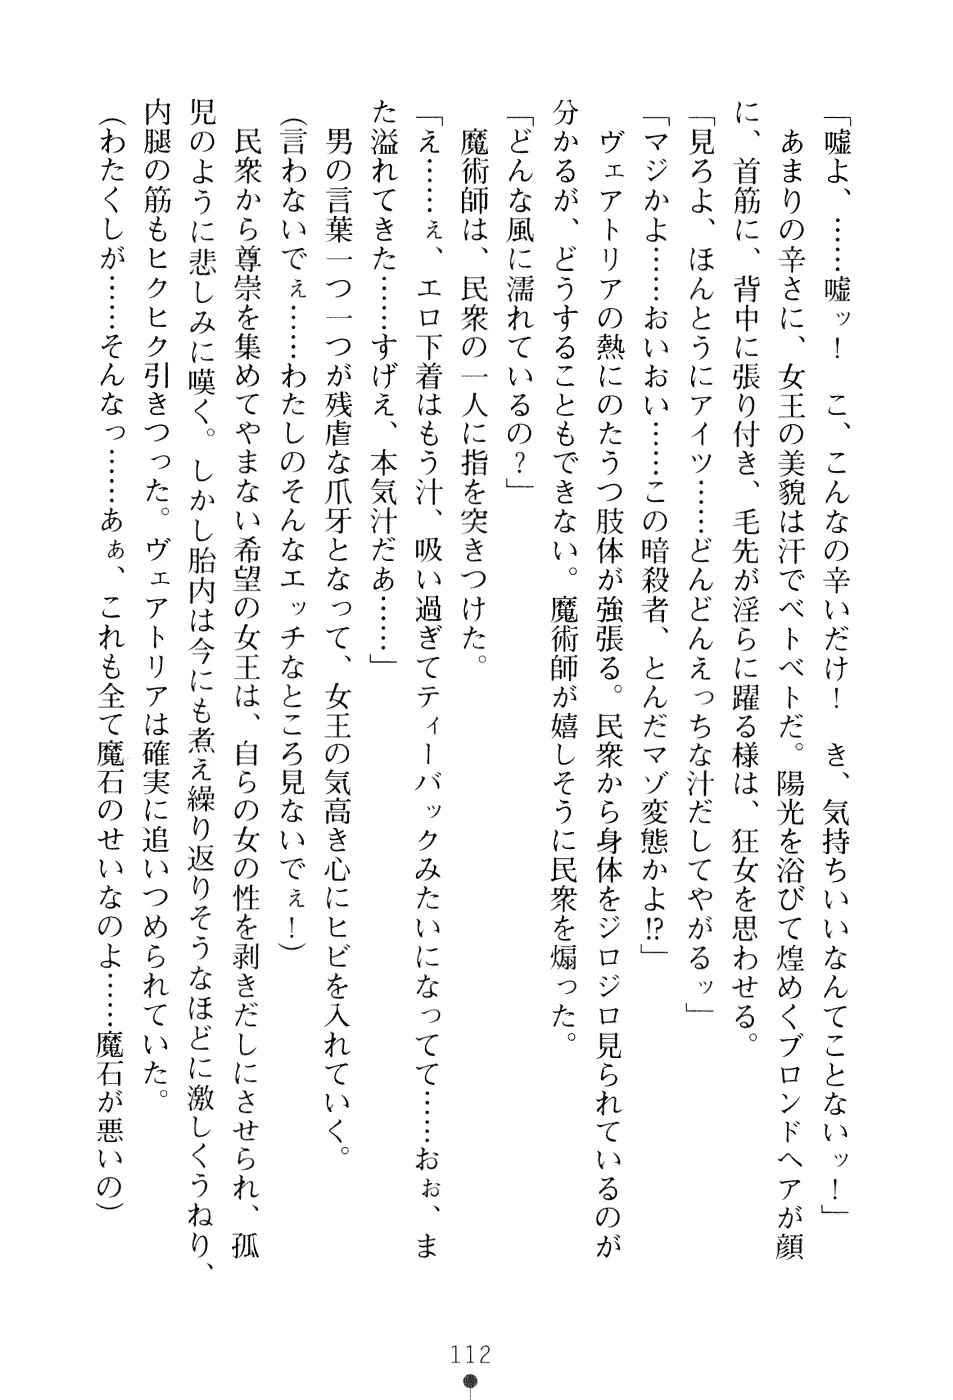 「嘘よ、……嘘ッ！　こ、こんなの辛いだけ！　き、気持ちいいなんてことないッ！」
　あまりの辛さに、女王の美貌は汗でベトベトだ。陽光を浴びて煌めくブロンドヘアが顔
に、首筋に、背中に張り付き、毛先が淫らに躍る様は、狂女を思わせる。
「見ろよ、ほんとうにアイツ……どんどんえっちな汁だしてやがるッ」
「マジかよ……おいおい……この暗殺者、とんだマゾ変態かよ!?」
　ヴェアトリアの熱にのたうつ肢体が強張る。民衆から身体をジロジロ見られているのが
分かるが、どうすることもできない。魔術師が嬉しそうに民衆を煽った。
「どんな風に濡れているの？」
　魔術師は、民衆の一人に指を突きつけた。
「え……ぇ、エロ下着はもう汁、吸い過ぎてティーバックみたいになってて……おぉ、ま
た溢れてきた……すげえ、本気汁だあ……」
　男の言葉一つ一つが残虐な爪牙となって、女王の気高き心にヒビを入れていく。
（言わないでぇ……わたしのそんなエッチなところ見ないでぇ！）
　民衆から尊崇を集めてやまない希望の女王は、自らの女の性を剥きだしにさせられ、孤
児のように悲しみに嘆く。しかし胎内は今にも煮え繰り返りそうなほどに激しくうねり、
内腿の筋もヒクヒク引きつった。ヴェアトリアは確実に追いつめられていた。
（わたくしが……そんなっ……あぁ、これも全て魔石のせいなのよ……魔石が悪いの）
112